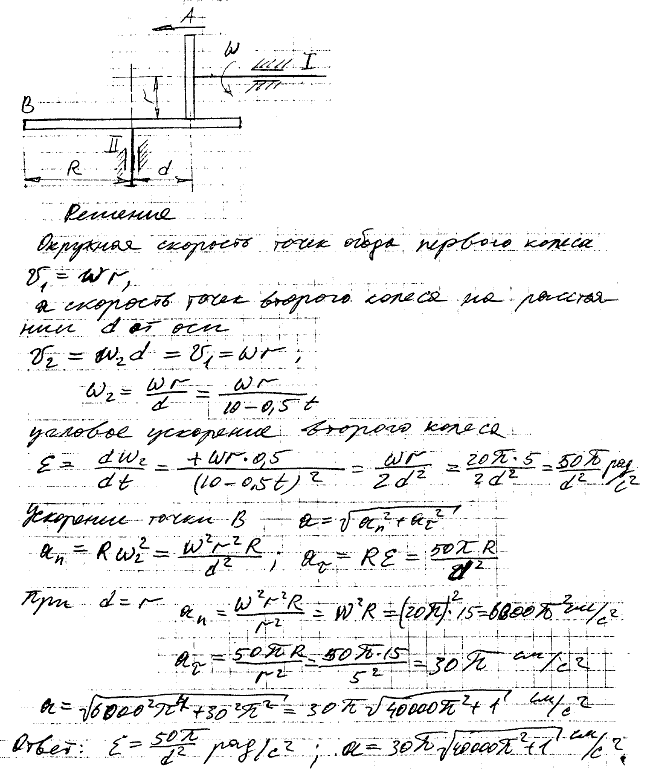 A
ω
I
B
r
II
R
d
Решение
Окружная скорость точек обода первого колеса
v₁ = ωr,
а скорость точек второго колеса на расстоя-
нии d от оси
v₂ = ω₂d = v₁ = ωr ;
ω₂ = ωr/d = ωr/(10-0,5t)
угловое ускорение второго колеса
ε = dω₂/dt = +ωr·0,5/(10-0,5t)² = ωr/2d² = 20π·5/2d² = 50π/d² рад/с²
Ускорение точки B a = √(aₙ²+a_τ²)
aₙ = Rω₂² = ω²r²R/d² ; a_τ = Rε = 50πR/d²
При d = r aₙ = ω²r²R/r² = ω²R = (20π)²·15 = 6000π² см/с²
a_τ = 50πR/r² = 50π·15/5² = 30π см/с²
a = √(6000²π⁴+30²π²) = 30π√(40000π²+1) см/с²
Ответ: ε = 50π/d² рад/с² ; a = 30π√(40000π²+1) см/с².